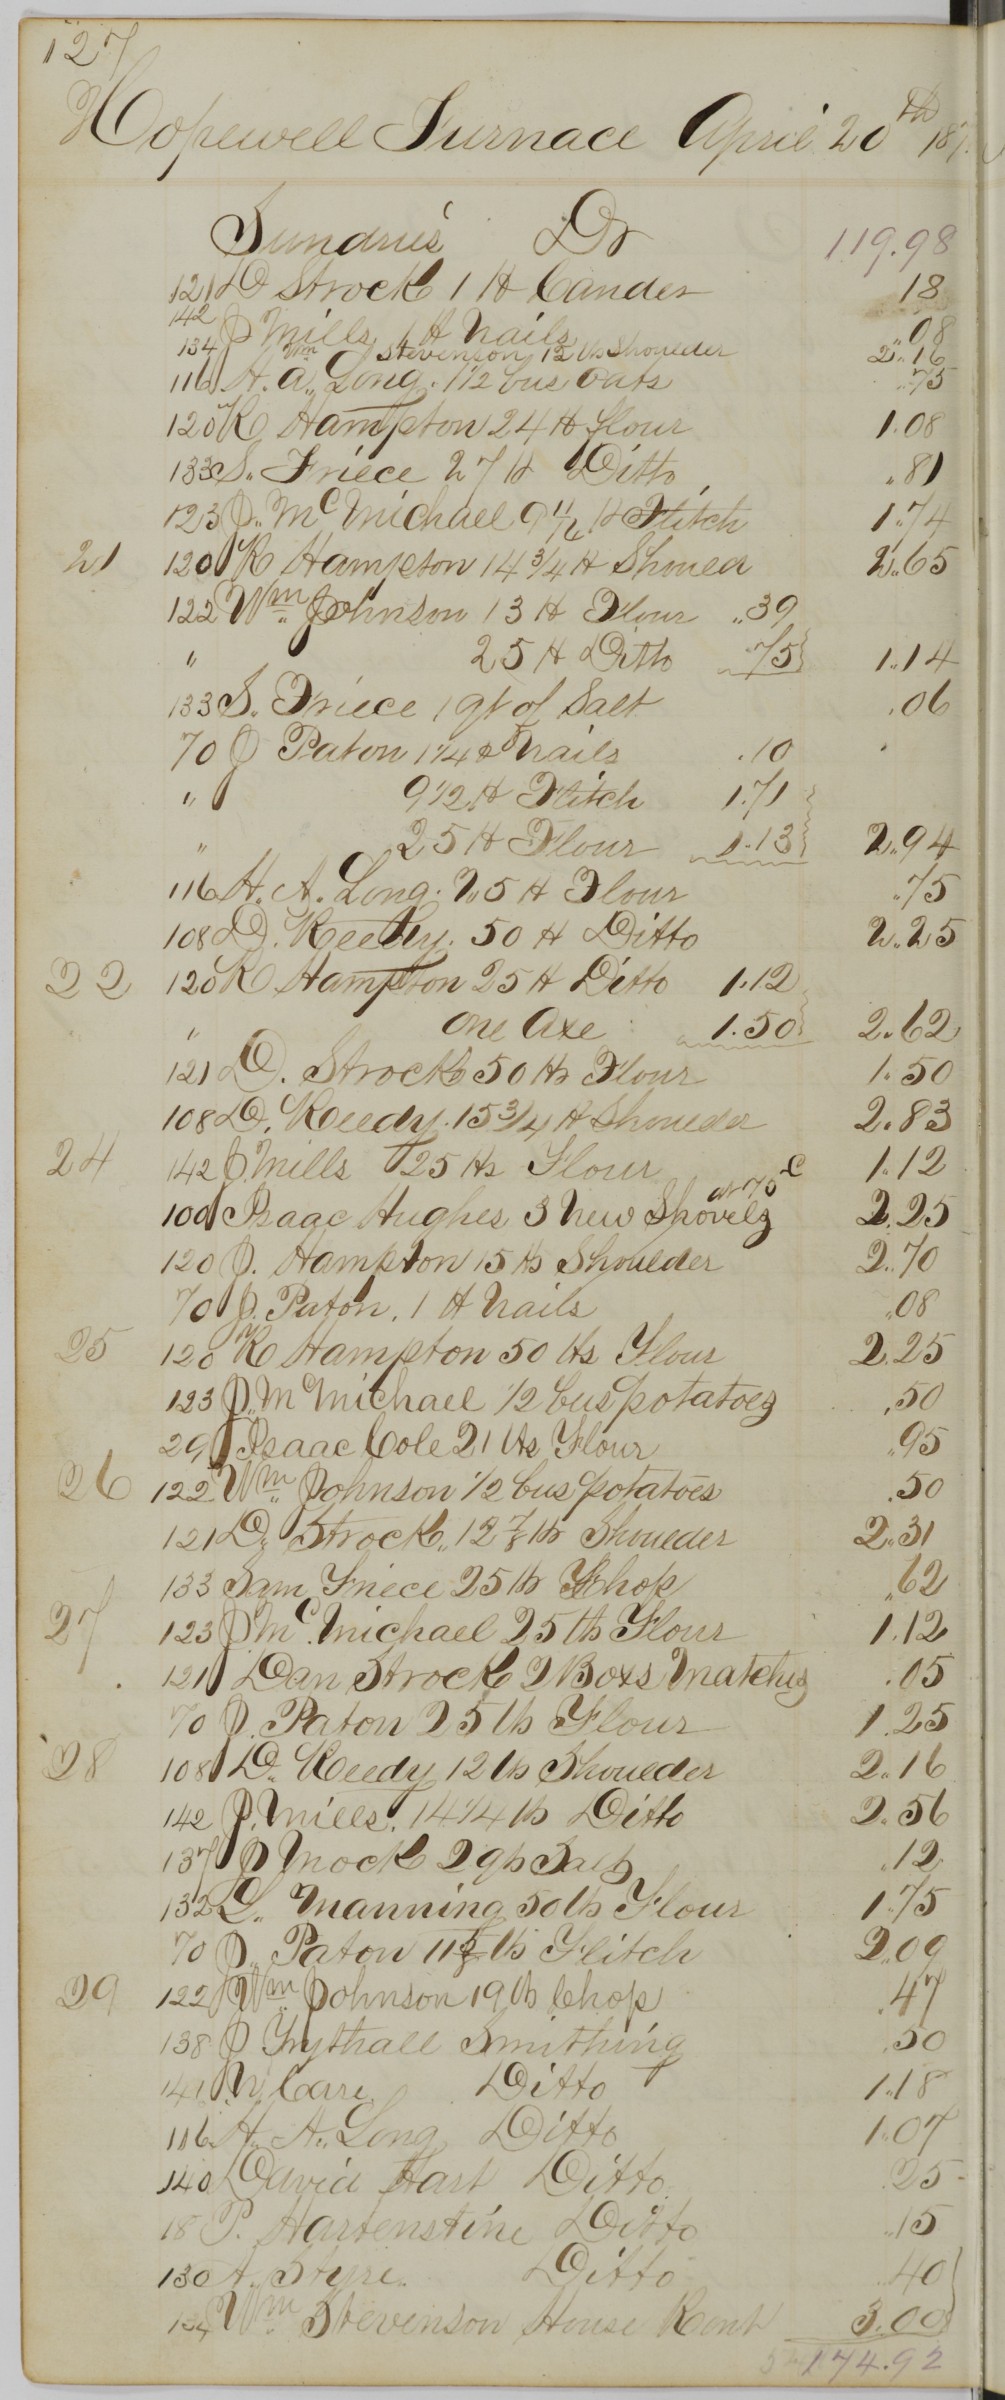 127
Hopewell Furnace April 20th 187
Sundries Dr 119.98
121 D Strock 1 lt Cander 18
142 J Mills 1 lt Nails .08
134 Wm Stevenson 12 lbs Shoulder 2.16
116 H. A. Long. 1 1/2 bus Oats .75
120 K Hampton 24 lt flour 1.08
133 S. Friece 27 lt Ditto .81
123 J. McMichael 9 lt Flitch 1.74
21 120 K Hampton 14 3/4 lt Shoued 2.65
122 Wm Johnson 13 lt Flour .39
" 25 lt Ditto .75 1.14
133 S. Friece 1 qt of Salt .06
70 J Paton 1 1/4 lt Nails .10
" 9 1/2 lt Flitch 1.71
" 25 lt Flour 1.13 2.94
116 H. A. Long. 25 lt Flour .75
108 D. Keedy. 50 lt Ditto 2.25
22 120 K Hampton 25 lt Ditto 1.12
" One Axe 1.50 2.62
121 D. Strock 50 lbs Flour 1.50
108 D. Keedy. 15 3/4 lt Shoueder 2.83
24 142 J. Mills 25 lbs Flour 1.12
100 Isaac Hughes 3 New Shovels at 75 c 2.25
120 J. Hampton 15 lbs Shoulder 2.70
70 J. Paton. 1 lt Nails .08
25 120 K Hampton 50 lbs Flour 2.25
123 J. McMichael 1/2 bus potatoes .50
29 Isaac Cole 21 lbs Flour .95
26 122 Wm Johnson 1/2 bus potatoes .50
121 D. Strock. 12 7/8 lb Shoueder 2.31
133 Sam Friece 25 lb Chop .62
27 123 J McMichael 25 lb Flour 1.12
121 Dan Strock 2 Boxs Matches .05
70 J. Paton 25 lb Flour 1.25
28 108 D. Keedy 12 lb Shoueder 2.16
142 J. Mills. 14 1/4 lb Ditto 2.56
137 J Mock 2 qts Salt .12
132 L. Manning 50 lb Flour 1.75
70 J. Paton 11 5/8 lb Flitch 2.09
29 122 Wm Johnson 19 lb Chop .47
138 J Trythall Smithing .50
141 N. Care Ditto 1.18
116 H. A. Long Ditto 1.07
140 David Hart Ditto .25
18 P. Hartenstine Ditto .15
130 A. Styre. Ditto .40
134 Wm Stevenson House Rent 3.00
174.92